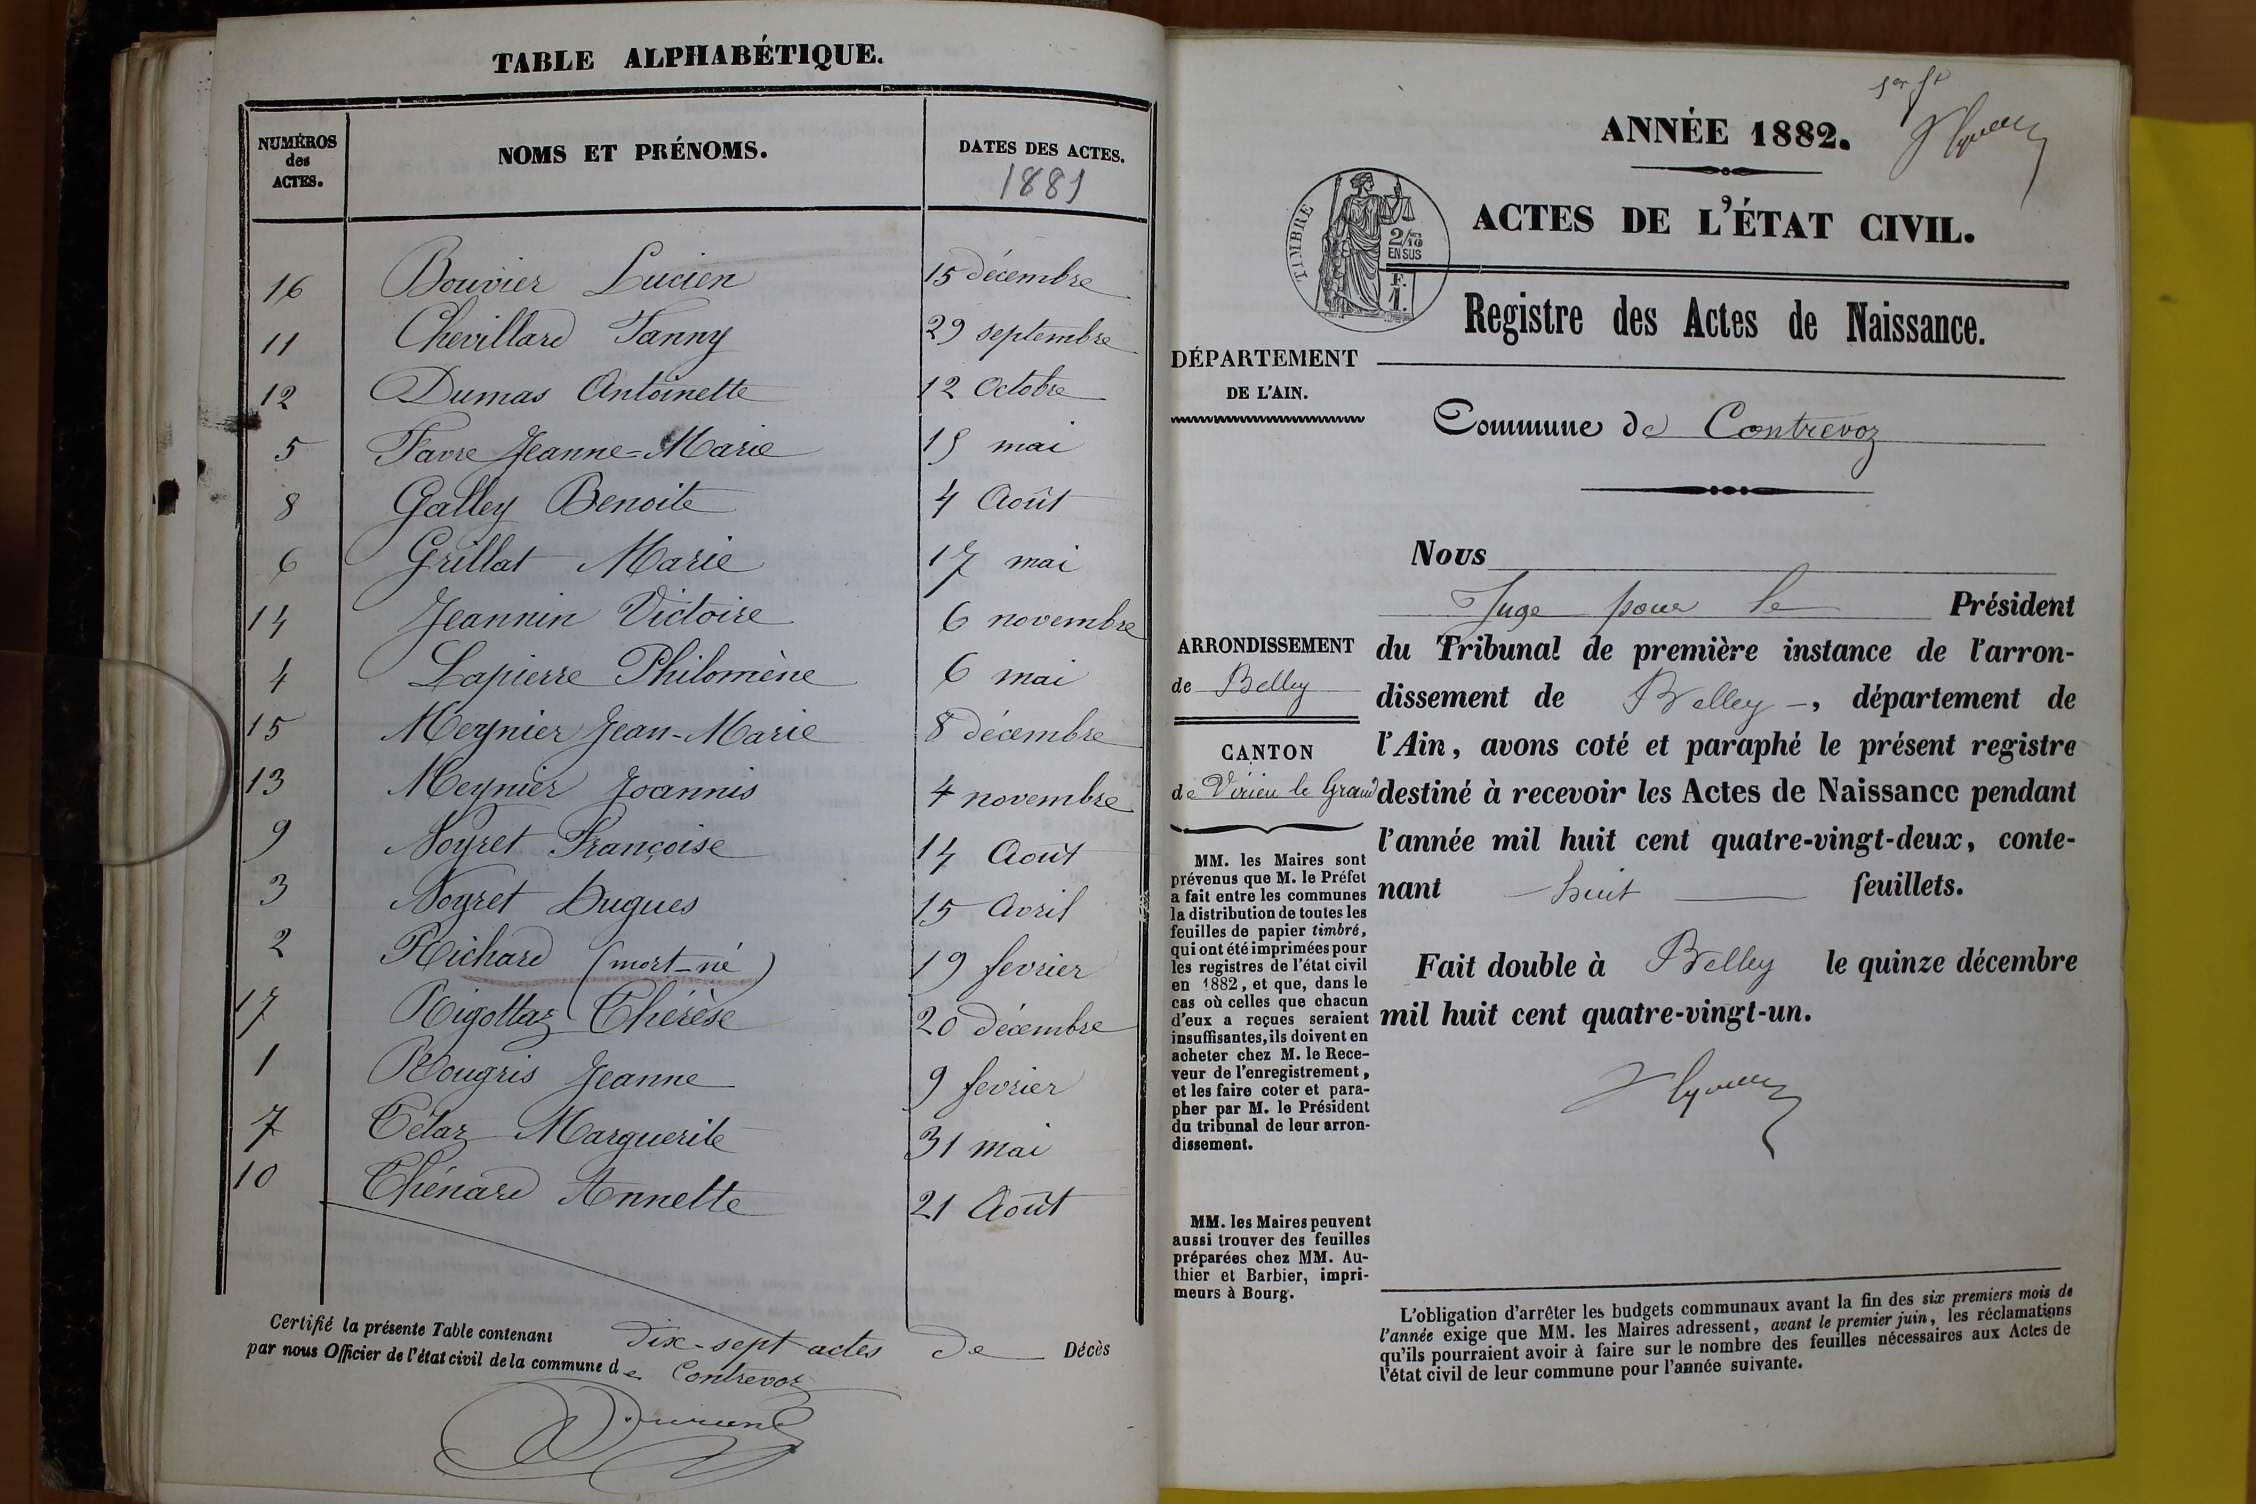 TABLE ALPHABÉTIQUE.
NUMÉROS
des
ACTES.
NOMS ET PRÉNOMS.
DATES DES ACTES.
1881
16 Bouvier Lucien 15 décembre
11 Chevillard Fanny 29 septembre
12 Dumas Antoinette 12 Octobre
5 Favre Jeanne-Marie 15 mai
8 Galley Benoite 4 Août
6 Grillat Marie 17 mai
14 Jeannin Victoire 6 novembre
4 Lapierre Philomène 6 mai
15 Meynier Jean-Marie 8 décembre
13 Meynier Joannis 4 novembre
9 Noyret Françoise 14 Août
3 Noyret Hugues 15 Avril
2 Richard (mort-né) 19 fevrier
17 Rigottaz Thérèse 20 décembre
1 Rougris Jeanne 9 fevrier
7 Tétaz Marguerite 31 mai
10 Thénard Annette 21 Août
Certifié la présente Table contenant dix-sept actes de Décès
par nous Officier de l'état civil de la commune de Contrevoz
ANNÉE 1882.
ACTES DE L'ÉTAT CIVIL.
TIMBRE
2/10
EN SUS
F.
1.
Registre des Actes de Naissance.
DÉPARTEMENT
DE L'AIN.
Commune de Contrevoz
ARRONDISSEMENT
de Belley
CANTON
de Virieu le Grand
MM. les Maires sont
prévenus que M. le Préfet
a fait entre les communes
la distribution de toutes les
feuilles de papier timbré,
qui ont été imprimées pour
les registres de l'état civil
en 1882, et que, dans le
cas où celles que chacun
d'eux a reçues seraient
insuffisantes, ils doivent en
acheter chez M. le Rece-
veur de l'enregistrement,
et les faire coter et para-
pher par M. le Président
du tribunal de leur arron-
dissement.
MM. les Maires peuvent
aussi trouver des feuilles
préparées chez MM. Au-
thier et Barbier, impri-
meurs à Bourg.
Nous
Juge pour le Président
du Tribunal de première instance de l'arron-
dissement de Belley, département de
l'Ain, avons coté et paraphé le présent registre
destiné à recevoir les Actes de Naissance pendant
l'année mil huit cent quatre-vingt-deux, conte-
nant huit feuillets.
Fait double à Belley le quinze décembre
mil huit cent quatre-vingt-un.
L'obligation d'arrêter les budgets communaux avant la fin des six premiers mois de
l'année exige que MM. les Maires adressent, avant le premier juin, les réclamations
qu'ils pourraient avoir à faire sur le nombre des feuilles nécessaires aux Actes de
l'état civil de leur commune pour l'année suivante.